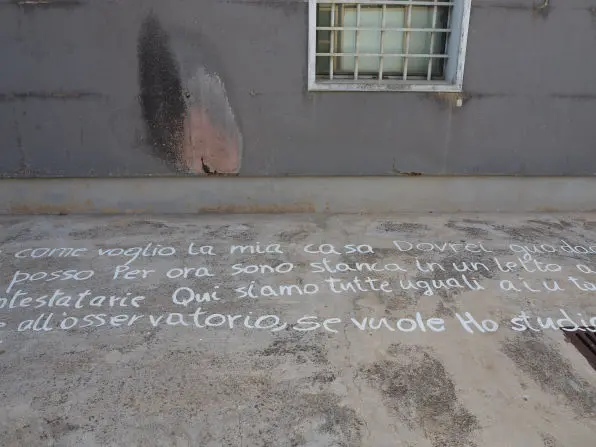 come voglio la mia casa Dovrei guada
posso Per ora sono stanca In un letto a
testatarie Qui siamo tutte uguali aiuta
all'osservatorio, se vuole Ho studi